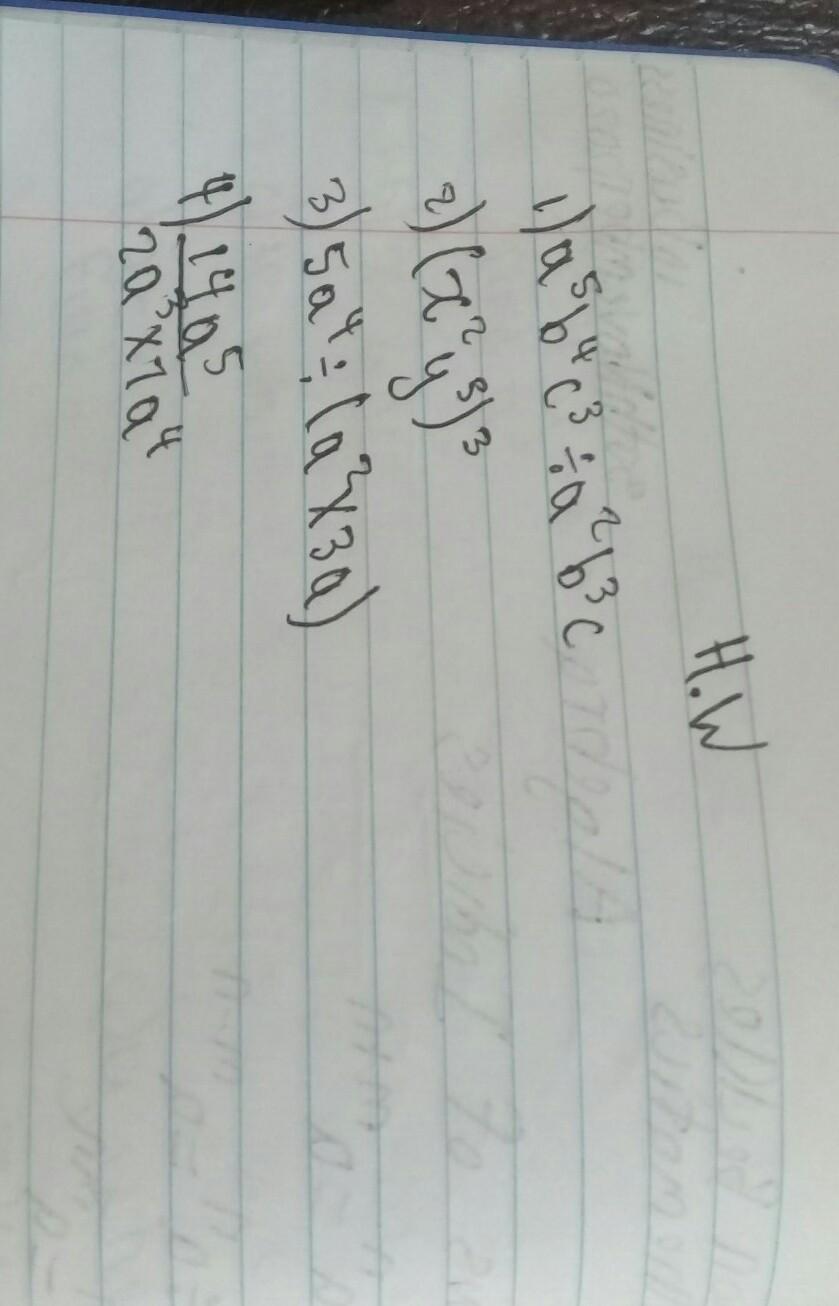 H.W
1) a⁵b⁴c³ ÷ a²b³c
2) (x²y³)³
3) 5a⁴ ÷ (a² x 3a)
4) 14a⁵
2a³ x 7a⁴